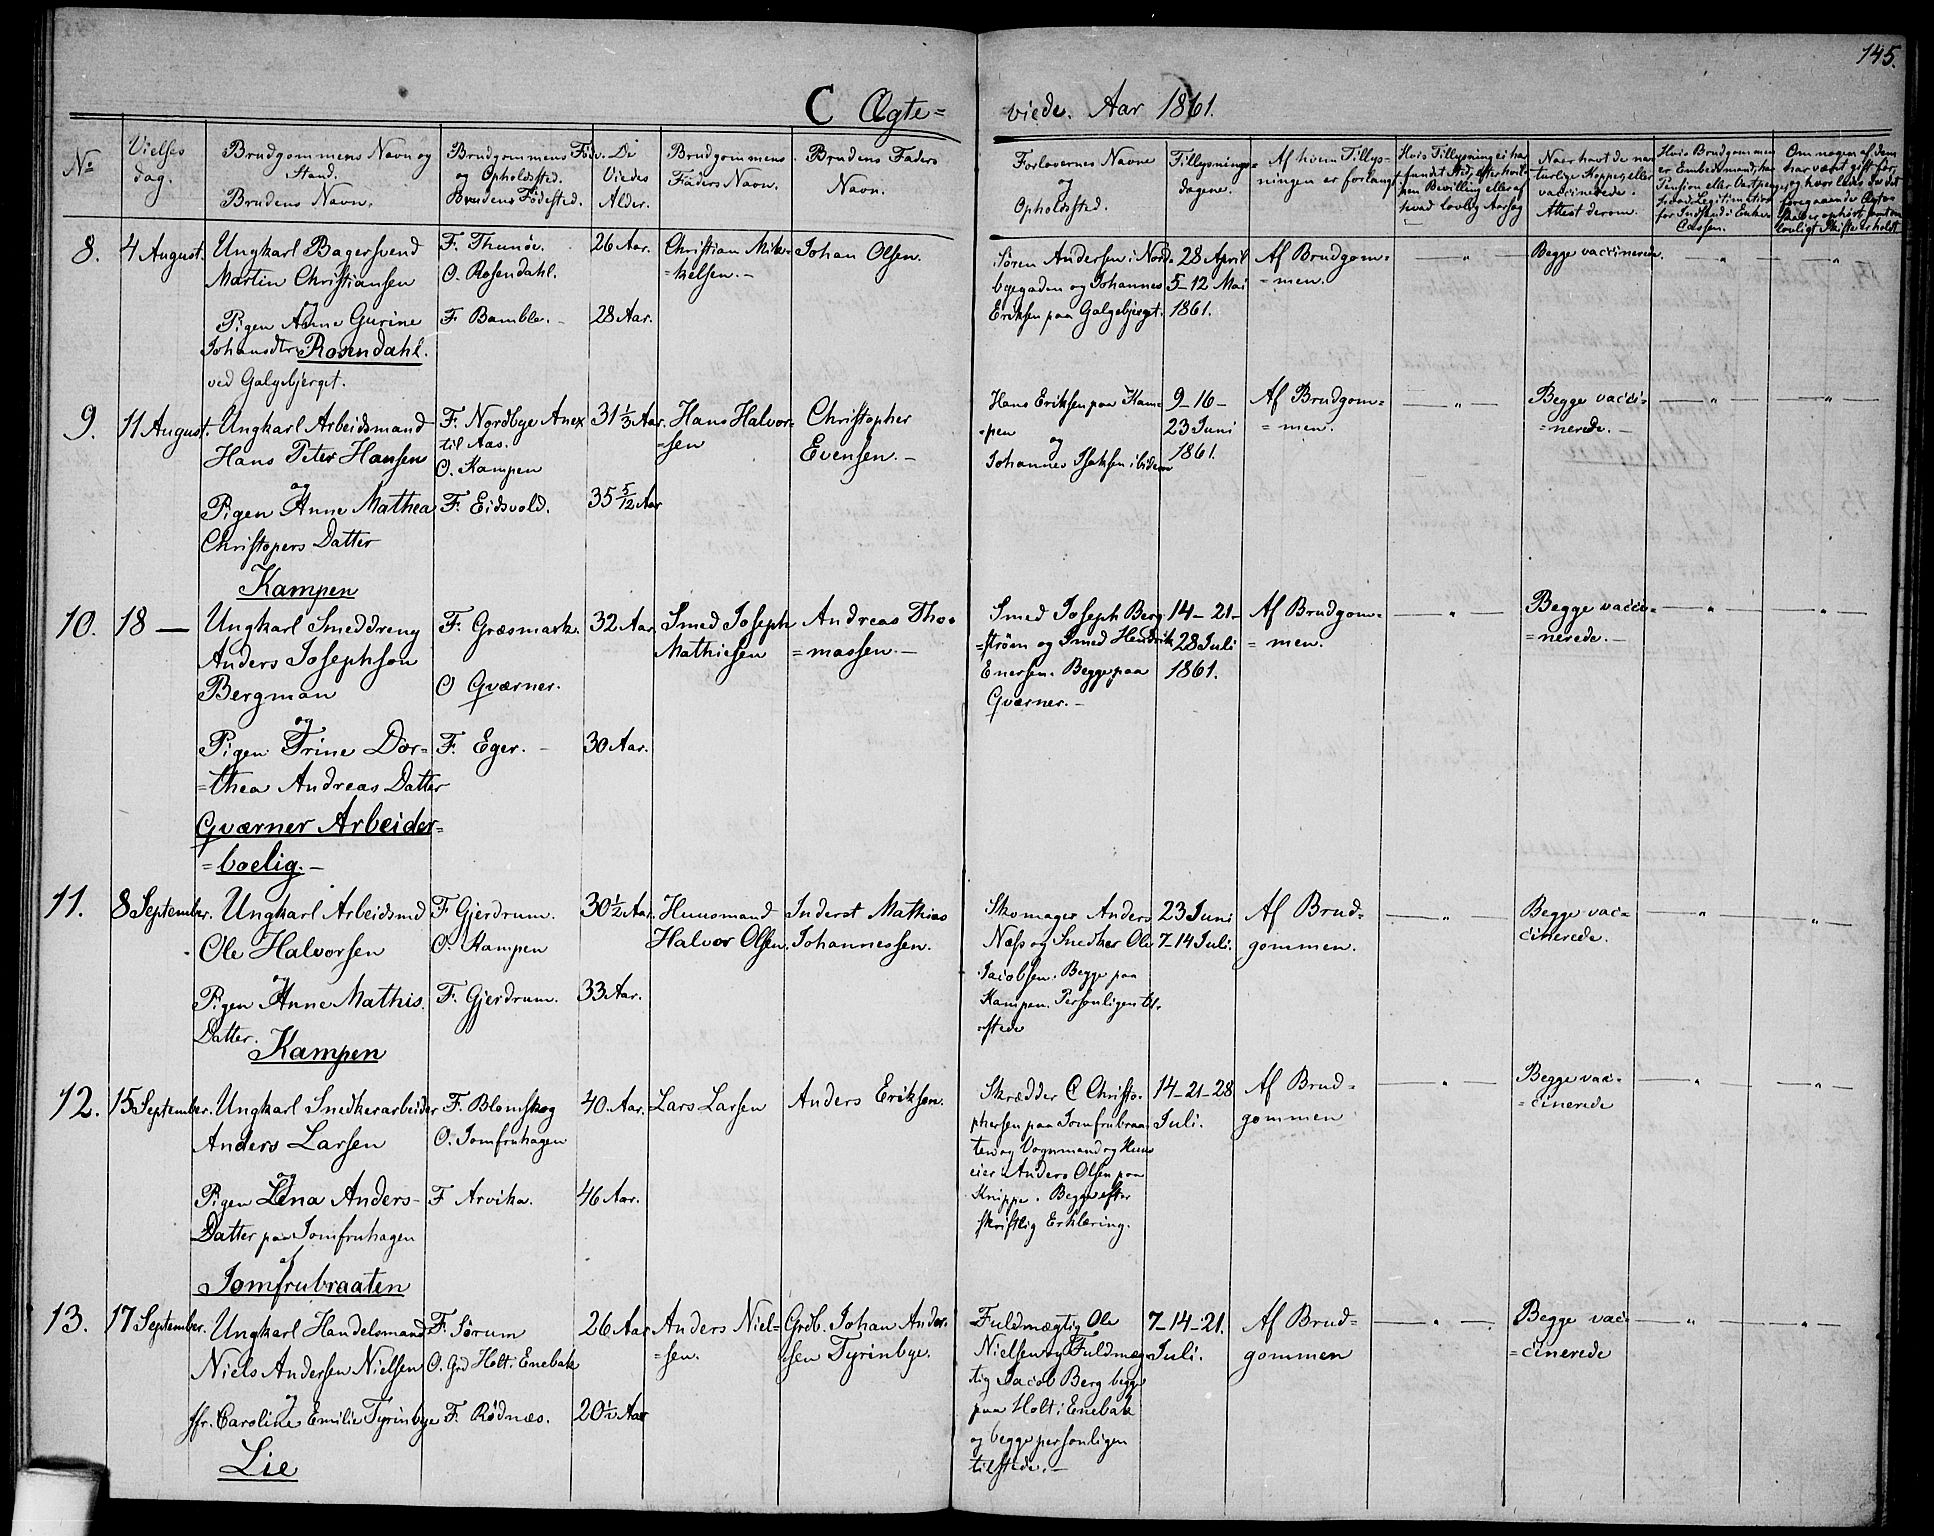 145.
C Ægte=
viede. Aar 1861.
No
Vielses
dag.
Brudgommens Navn og
Stand.
Brudens Navn.
Brudgommens Føds.
og Opholdssted.
Brudens Fødested.
De
Viedes
Alder.
Brudgommens
Faders Navn.
Brudens Faders
Navn.
Forlovernes Navne
og
Opholdssted.
Tillysnings=
dagene.
Af hvem Tillys-
ningen er forlangt
Hvis Tillysning ei har
fundet Sted, efter hvil-
ken Bevilling eller af
hvad lovlig Aarsag
Naar havt de na-
turlige Kopper, eller
vaccinerede.
Attest derom.
Hvis Brudgommen
er Embedsmand, har
Pension eller Vartpenge,
hvad Legitimation
for Indskud i Enke
Cassen.
Om nogen af dem
har været gift før,
og hvorledes da det
foregaaende Ægte-
skab er ophørt, samt om
lovligt Skifte er holdt
8.
4 August.
Ungkarl Bagersvend
Martin Christiansen
og
Pigen Anne Gurine
Johansdtr. Rosendahl.
ved Galgebjerget.
F. Thunöe.
O. Rosendahl.
F. Bamble. –
26 Aar.
28 Aar.
Christian Mik-
kelsen. –
Johan Olsen.
Søren Andersen i Nord-
byegaden og Johannes
Eriksen paa Galgebjerget.
28 April
5–12 Mai
1861.
Af Brudgom=
=men.
— „ —
Begge vaccinerede.
— „ —
— „ —
9.
11 August.
Ungkarl Arbeidsmand
Hans Peter Hansen
og
Pigen Anne Mathea
Christopers Datter
Kampen
F. Nordbye Anex
til Aas.
O. Kampen
F. Eidsvold.
31 1/3 Aar.
35 5/12 Aar
Hans Halvor=
=sen
Christopher
Evensen. –
Hans Eriksen paa Kam=
=pen
og
Johannes Isaksen ibidem
9–16–
23 Juni
1861.
Af Brudgom=
=men.
— „ —
Begge vacci=
=nerede. –
— „ —
— „ —
10.
18 —
Ungkarl Smeddreng
Anders Josephson
Bergman
og
Pigen Trine Dor=
=thea Andreas Datter
Gværner Arbeider=
=boelig. –
F. Græsmark.
O Gværner.
F. Eger. –
32 Aar.
30 Aar.
Smed Joseph
Mathiesen
Andreas Tho=
=massen. –
Smed Joseph Berg
=strøm og Smed Hendrik
Enersen. Begge paa
Gværner. –
14–21–
28 Juli
1861.
Af Brudgom=
= men.
— „ —
Begge vacci=
=nerede. –
— „ —
— „ —
11.
8 September.
Ungkarl Arbeidsmd
Ole Halvorsen
og
Pigen Anne Mathis.
Datter.
Kampen
F. Gjerdrum.
O. Kampen
F. Gjerdrum.
30 1/2 Aar.
33 Aar.
Huusmand
Halvor Olsen.
Inderst Mathias
Johannessen.
Skomager Anders
Næss og Snedker Ole
Jacobsen. Begge paa
Kampen. Personligen til-
stede
23 Juni
7–14 Juli.
Af Brud=
gommen.
— „ —
Begge vac=
cinerede.
— „ —
— „ —
12.
15 September.
Ungkarl Snedkerarbeider
Anders Larsen
og
Pigen Lena Anders-
Datter paa Jomfruhagen
af
Jomfrubraaten
F. Blomskog
O. Jomfruhagen
F Arvika.
40 Aar.
46 Aar.
Lars Larsen
Anders Erikson.
Skrædder C Christo=
phersen paa Jomfrubraa=
ten og Vognmand og Huus
eier Anders Olsen paa
Knippe. Begge efter
skriftlig Erklæring.
14–21–28
Juli.
Af Brud=
gommen
— „ —
Begge vac=
=cinerede
— „ —
— „ —
13.
17 September.
Ungkarl Handelsmand
Niels Andersen Nielsen
og
Jfr. Caroline Emilie Tyrinbye
Lie
F. Sørum
O. Grd Holt i Enebak
F. Rødnæs.
26 Aar
20 1/2 Aar
Anders Niel=
=sen.
Grdb. Johan Ander-
sen Tyrinbye.
Fuldmægtig Ole
Nielsen og Fuldmæg=
tig Jacob Berg begge
paa Holt i Enebak
og begge personligen
tilstede. –
7–14–21.
Juli.
Af Brud=
gommen
— „ —
Begge vac=
=cinerede
— „ —
— „ —